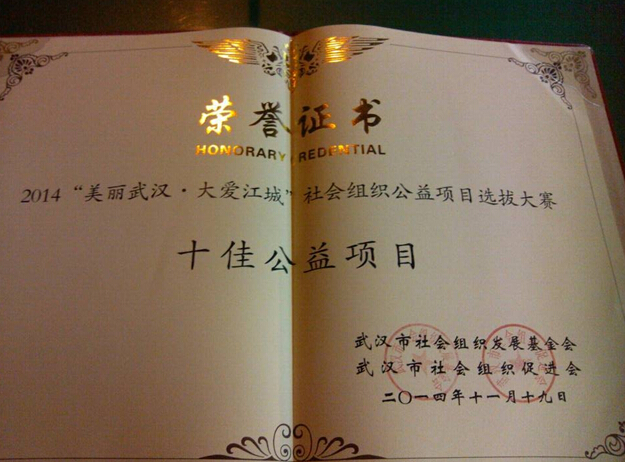 荣誉证书
HONORARY CREDENTIAL
2014“美丽武汉·大爱江城”社会组织公益项目选拔大赛
十佳公益项目
武汉市社会组织发展基金会
武汉市社会组织促进会
二〇一四年十一月十九日